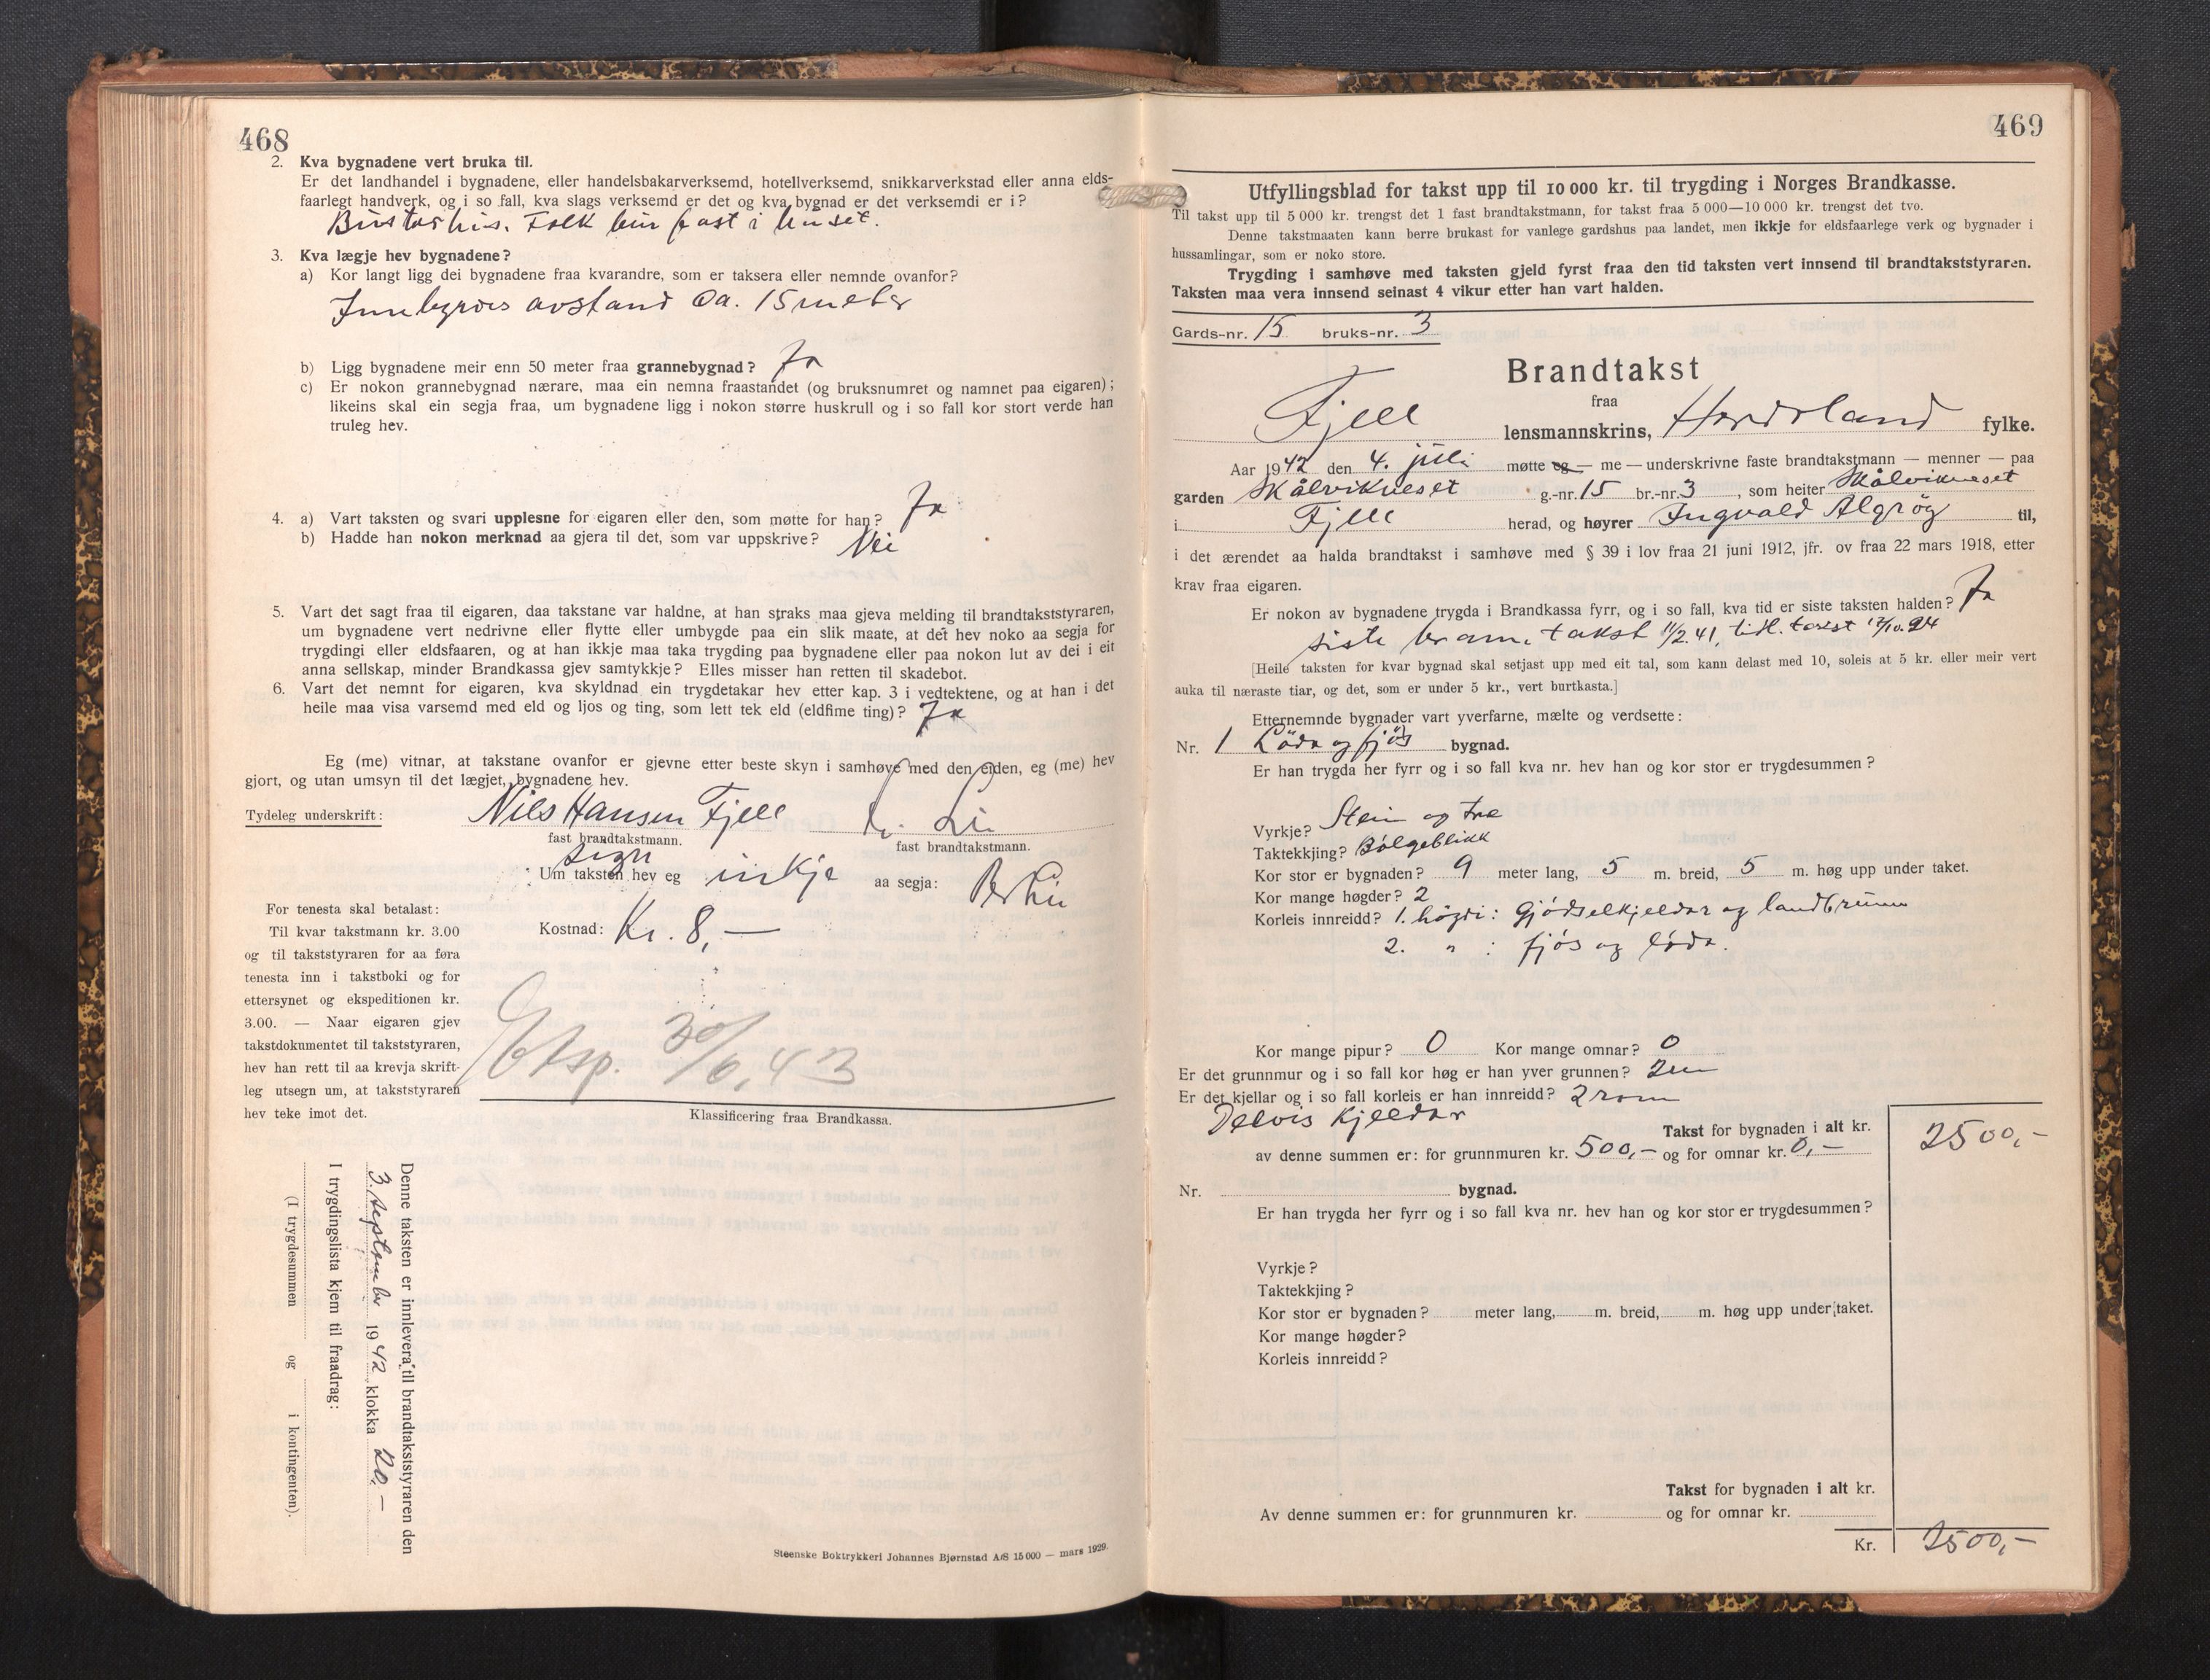 468
2. Kva bygnadene vert bruka til.
Er det landhandel i bygnadene, eller handelsbakarverksemd, hotellverksemd, snikkarverkstad eller anna elds-
faarlegt handverk, og i so fall, kva slags verksemd er det og kva bygnad er det verksemdi er i?
Bustadhus. Folk bur fast i huset.
3. Kva lægje hev bygnadene?
a) Kor langt ligg dei bygnadene fraa kvarandre, som er taksera eller nemnde ovanfor?
Innbyrdes avstand ca. 15 meter
b) Ligg bygnadene meir enn 50 meter fraa grannebygnad? Ja
c) Er nokon grannebygnad nærare, maa ein nemna fraastandet (og bruksnumret og namnet paa eigaren);
likeins skal ein segja fraa, um bygnadene ligg i nokon større huskrull og i so fall kor stort verde han
truleg hev.
4. a) Vart taksten og svari upplesne for eigaren eller den, som møtte for han? Ja
b) Hadde han nokon merknad aa gjera til det, som var uppskrive? Nei
5. Vart det sagt fraa til eigaren, daa takstane var haldne, at han straks maa gjeva melding til brandtakststyraren,
um bygnadene vert nedrivne eller flytte eller umbygde paa ein slik maate, at det hev noko aa segja for
trygdingi eller eldsfaaren, og at han ikkje maa taka trygding paa bygnadene eller paa nokon lut av dei i eit
anna sellskap, minder Brandkassa gjev samtykkje? Elles misser han retten til skadebot.
6. Vart det nemnt for eigaren, kva skyldnad ein trygdetakar hev etter kap. 3 i vedtektene, og at han i det
heile maa visa varsemd med eld og ljos og ting, som lett tek eld (eldfime ting)? Ja
Eg (me) vitnar, at takstane ovanfor er gjevne etter beste skyn i samhøve med den eiden, eg (me) hev
gjort, og utan umsyn til det lægjet, bygnadene hev.
Tydeleg underskrift: Nils Hansen Fjell Lie
fast brandtakstmann. fast brandtakstmann.
sign
Um taksten hev eg inkje aa segja: Per Lie
Kostnad: Kr. 8,—
For tenesta skal betalast:
Til kvar takstmann kr. 3.00
og til takststyraren for aa føra
tenesta inn i takstboki og for
ettersynet og ekspeditionen kr.
3.00. — Naar eigaren gjev
takstdokumentet til takststyraren,
hev han rett til aa krevja skrift-
leg utsegn um, at takststyraren
hev teke imot det.
Etsp. 30/6.43
Klassificering fraa Brandkassa.
Denne taksten er innlevera till brandtakststyraren den
3. september 1942 klokka 20.—
I trygdingslista kjem til fraadrag:
(I trygdesummen og i kontingenten).
Steenske Boktrykkeri Johannes Bjørnstad A/S 15 000 — mars 1929.
469
Utfyllingsblad for takst upp til 10 000 kr. til trygding i Norges Brandkasse.
Til takst upp til 5 000 kr. trengst det 1 fast brandtakstmann, for takst fraa 5 000—10 000 kr. trengst det tvo.
Denne takstmaaten kann berre brukast for vanlege gardshus paa landet, men ikkje for eldsfaarlege verk og bygnader i
hussamlingar, som er noko store.
Trygding i samhøve med taksten gjeld fyrst fraa den tid taksten vert innsend til brandtakststyraren.
Taksten maa vera innsend seinast 4 vikur etter han vart halden.
Gards-nr. 15 bruks-nr. 3
Brandtakst
fraa
Fjell lensmannskrins, Hordaland fylke.
Aar 1942 den 4. juli møtte eg — me — underskrivne faste brandtakstmann — menner — paa
garden Skålvikneset g.-nr. 15 br.-nr. 3, som heiter Skålvikneset
i Fjell herad, og høyrer Ingvald Algrøy til,
i det ærendet aa halda brandtakst i samhøve med § 39 i lov fraa 21 juni 1912, jfr. ov fraa 22 mars 1918, etter
krav fraa eigaren.
Er nokon av bygnadene trygda i Brandkassa fyrr, og i so fall, kva tid er siste taksten halden? Ja
siste takst 11/2.41, till. takst 17/10.24
[Heile taksten for kvar bygnad skal setjast upp med eit tal, som kann delast med 10, soleis at 5 kr. eller meir vert
auka til næraste tiar, og det, som er under 5 kr., vert burtkasta.]
Etternemnde bygnader vart yverfarne, mælte og verdsette:
Nr. 1 Löda og fjös bygnad.
Er han trygda her fyrr og i so fall kva nr. hev han og kor stor er trygdesummen?
Vyrkje? Stein og tre
Taktekkjing? Bölgeblikk
Kor stor er bygnaden? 9 meter lang, 5 m. breid, 5 m. høg upp under taket.
Kor mange høgder? 2
Korleis innreidd? 1. högdi: Gjödselkjeldar og landbrunn
2. " : fjös og löda.
Kor mange pipur? 0 Kor mange omnar? 0
Er det grunnmur og i so fall kor høg er han yver grunnen? 2 m
Er det kjellar og i so fall korleis er han innreidd? 2 rom
Delvis kjeldar
Takst for bygnaden i alt kr. 2500,—
av denne summen er: for grunnmuren kr. 500,— og for omnar kr. 0,—
Nr. bygnad.
Er han trygda her fyrr og i so fall kva nr. hev han og kor stor er trygdesummen?
Vyrkje?
Taktekkjing?
Kor stor er bygnaden? meter lang, m. breid, m. høg upp under taket.
Kor mange høgder?
Korleis innreidd?
Takst for bygnaden i alt kr.
Av denne summen er: for grunnmuren kr. og for omnar kr.
Kr. 2500,—